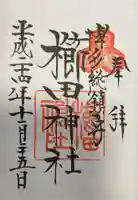 奉拝
博多総鎮守
櫛田神社
平成二十四年十二月二十五日